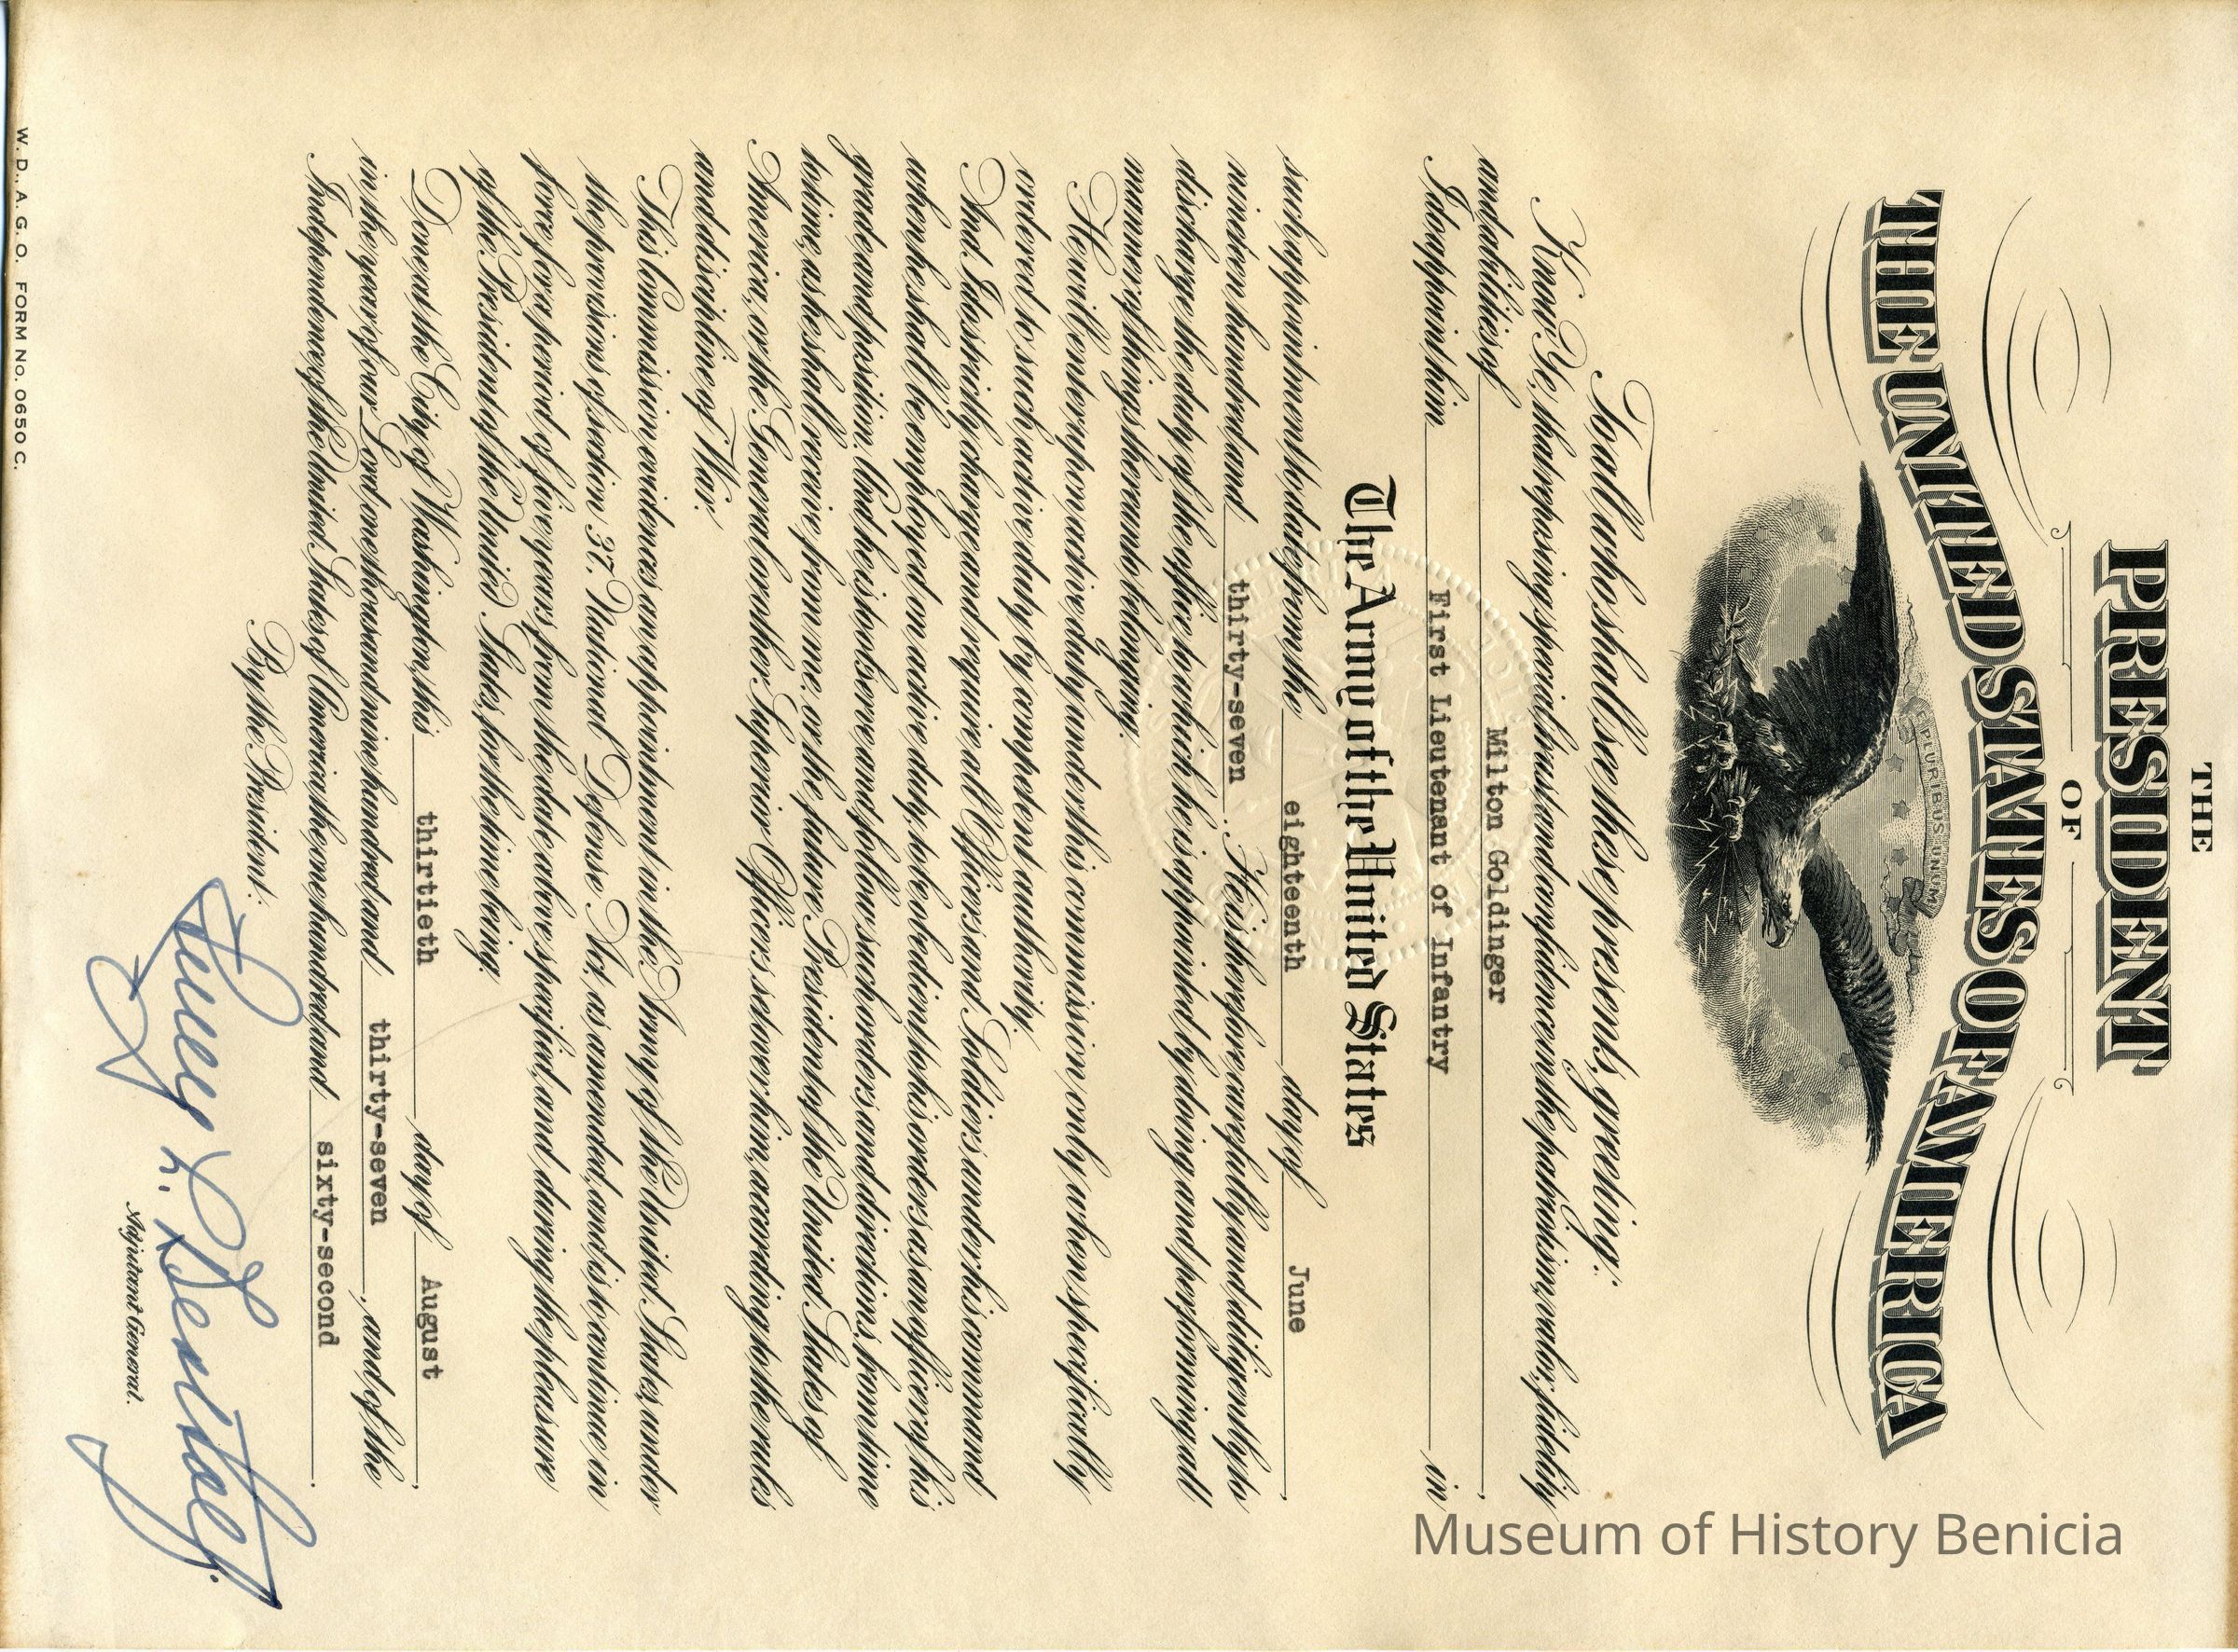 THE
PRESIDENT
OF
THE UNITED STATES OF AMERICA
E PLURIBUS UNUM
To all who shall see these presents, greeting:
Know Ye, that reposing special trust and confidence in the patriotism, valor, fidelity
and abilities of Milton Goldinger,
I do appoint him First Lieutenant of Infantry in
The Army of the United States
such appointment to date from the eighteenth day of June,
nineteen hundred and thirty-seven. He is therefore carefully and diligently to
discharge the duty of the office to which he is appointed by doing and performing all
manner of things thereunto belonging.
He will enter upon active duty under this commission only when specifically
ordered to such active duty by competent authority.
And I do strictly charge and require all Officers and Soldiers under his command
when he shall be employed on active duty, to be obedient to his orders as an officer of his
grade and position. And he is to observe and follow such orders and directions, from time
to time, as he shall receive from me, or the future President of the United States of
America, or the General or other Superior Officers set over him, according to the rules
and discipline of War.
This Commission evidences an appointment in the Army of the United States, under
the provisions of section 37, National Defense Act, as amended, and is to continue in
force for a period of five years from the date above specified, and during the pleasure
of the President of the United States, for the time being.
Done at the City of Washington, this thirtieth day of August,
in the year of our Lord one thousand nine hundred and thirty-seven, and of the
Independence of the United States of America the one hundred and sixty-second.
By the President:
Adjutant General.
W. D., A. G. O. FORM No. 0650 C.
Museum of History Benicia